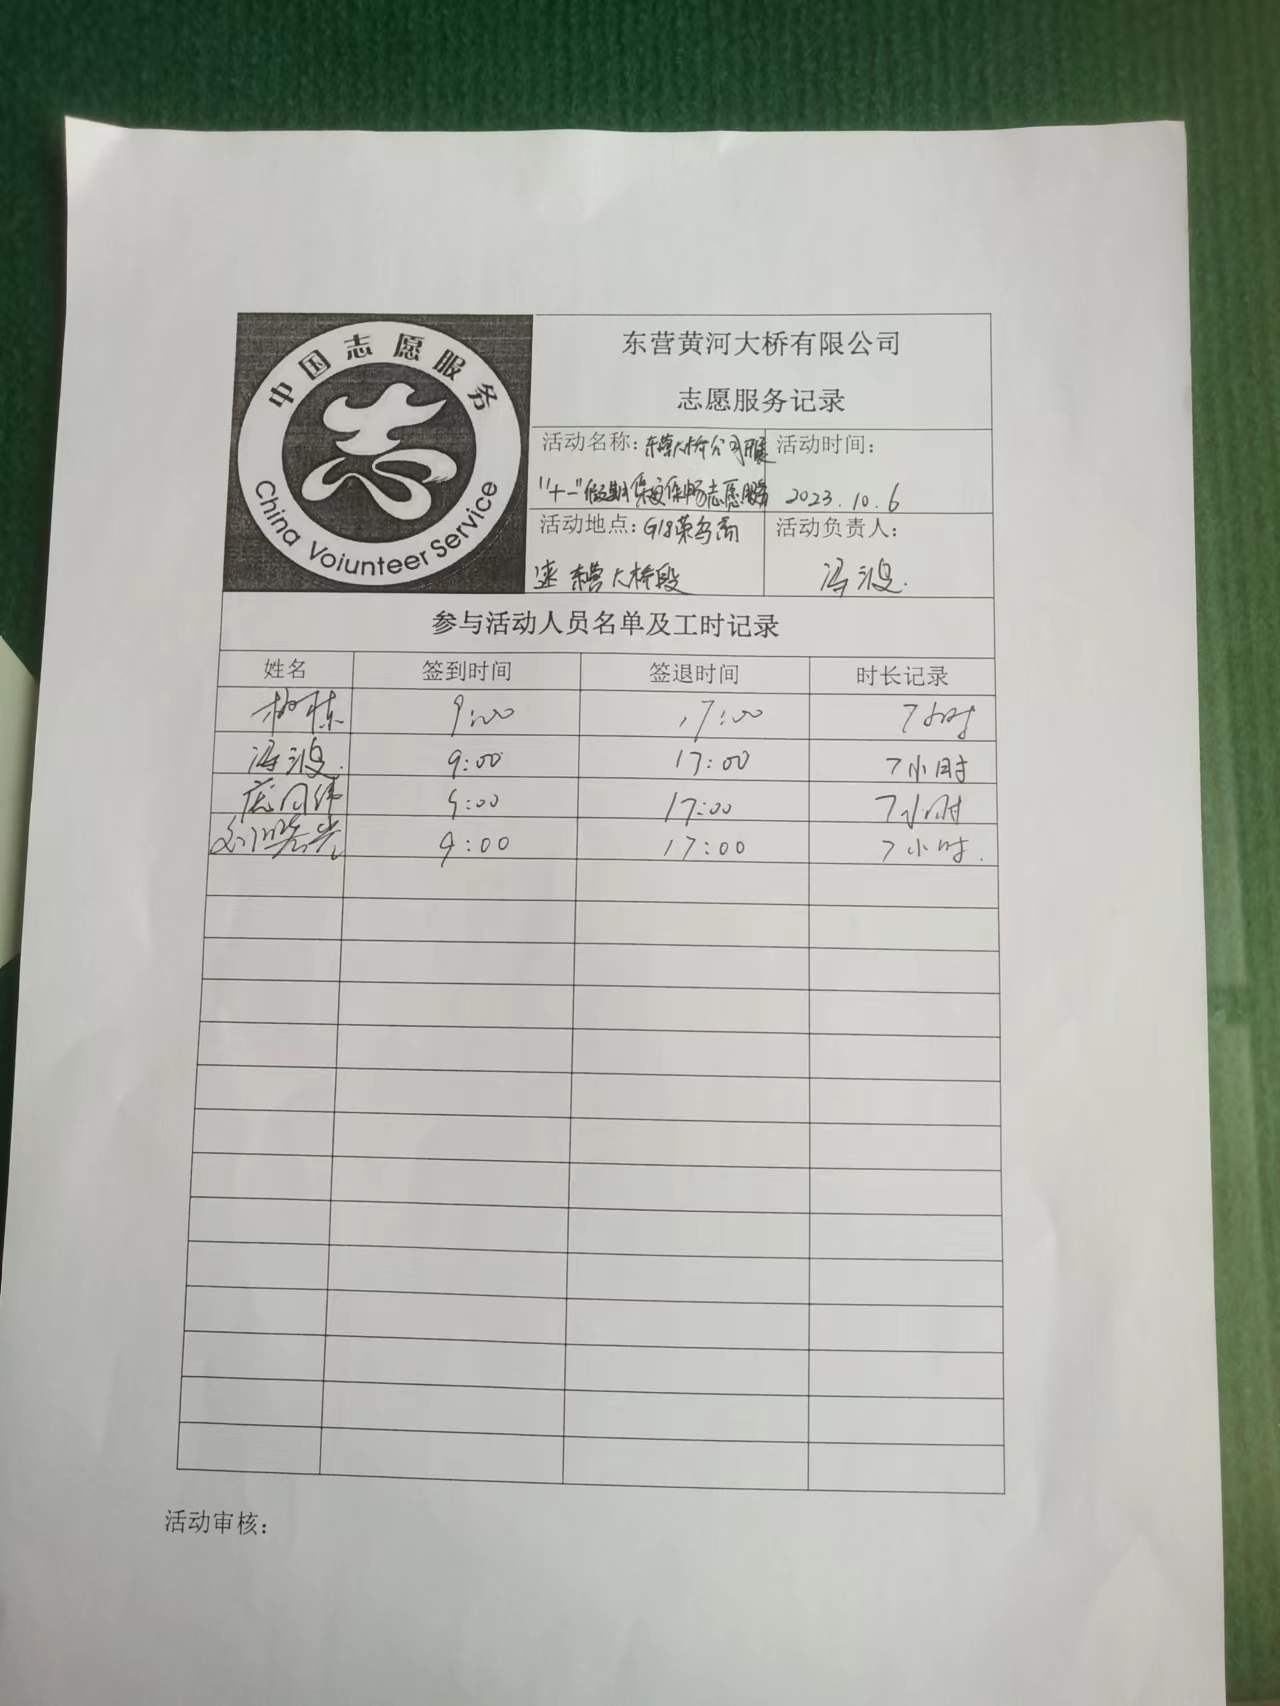 中国志愿服务
志
China Voiunteer Service
东营黄河大桥有限公司
志愿服务记录
活动名称：东营大桥公司开展
"十一"假期保安保畅志愿服务
活动时间：
2023.10.6
活动地点：G18荣乌高
速东营大桥段
活动负责人：
冯波.
参与活动人员名单及工时记录
姓名 签到时间 签退时间 时长记录
9:00 17:00 7小时
冯波. 9:00 17:00 7小时
9:00 17:00 7小时
9:00 17:00 7小时.
活动审核：